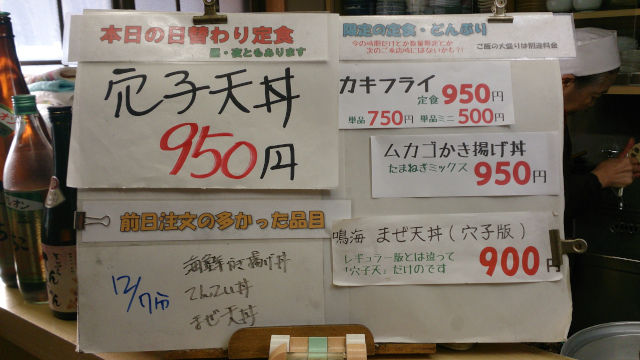 本日の日替わり定食
昼・夜ともあります
穴子天丼
950円
前日注文の多かった品目
12/7分
海鮮かき揚げ丼
てんこてい丼
まぜ天丼
限定の定食・どんぶり
今の時期だけとか数量限定とか
次のご来店時にはないかも!?
ご飯の大盛りは別途料金
カキフライ
定食950円
単品750円 単品ミニ500円
ムカゴかき揚げ丼
たまねぎミックス 950円
鳴海 まぜ天丼(穴子版)
レギュラー版とは違って
「穴子天」だけのです
900円